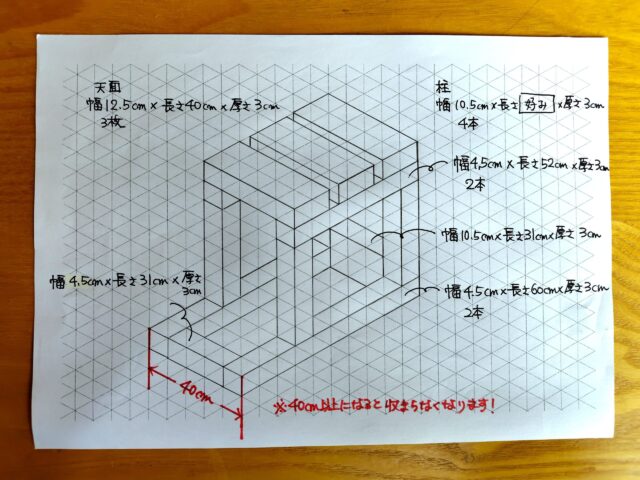 天面
幅12.5cm×長さ40cm×厚さ3cm
3枚
柱
幅10.5cm×長さ好み×厚さ3cm
4本
幅4.5cm×長さ52cm×厚さ3cm
2本
幅10.5cm×長さ31cm×厚さ3cm
幅4.5cm×長さ31cm×厚さ
3cm
幅4.5cm×長さ60cm×厚さ3cm
2本
40cm
※40cm以上になると収まらなくなります!